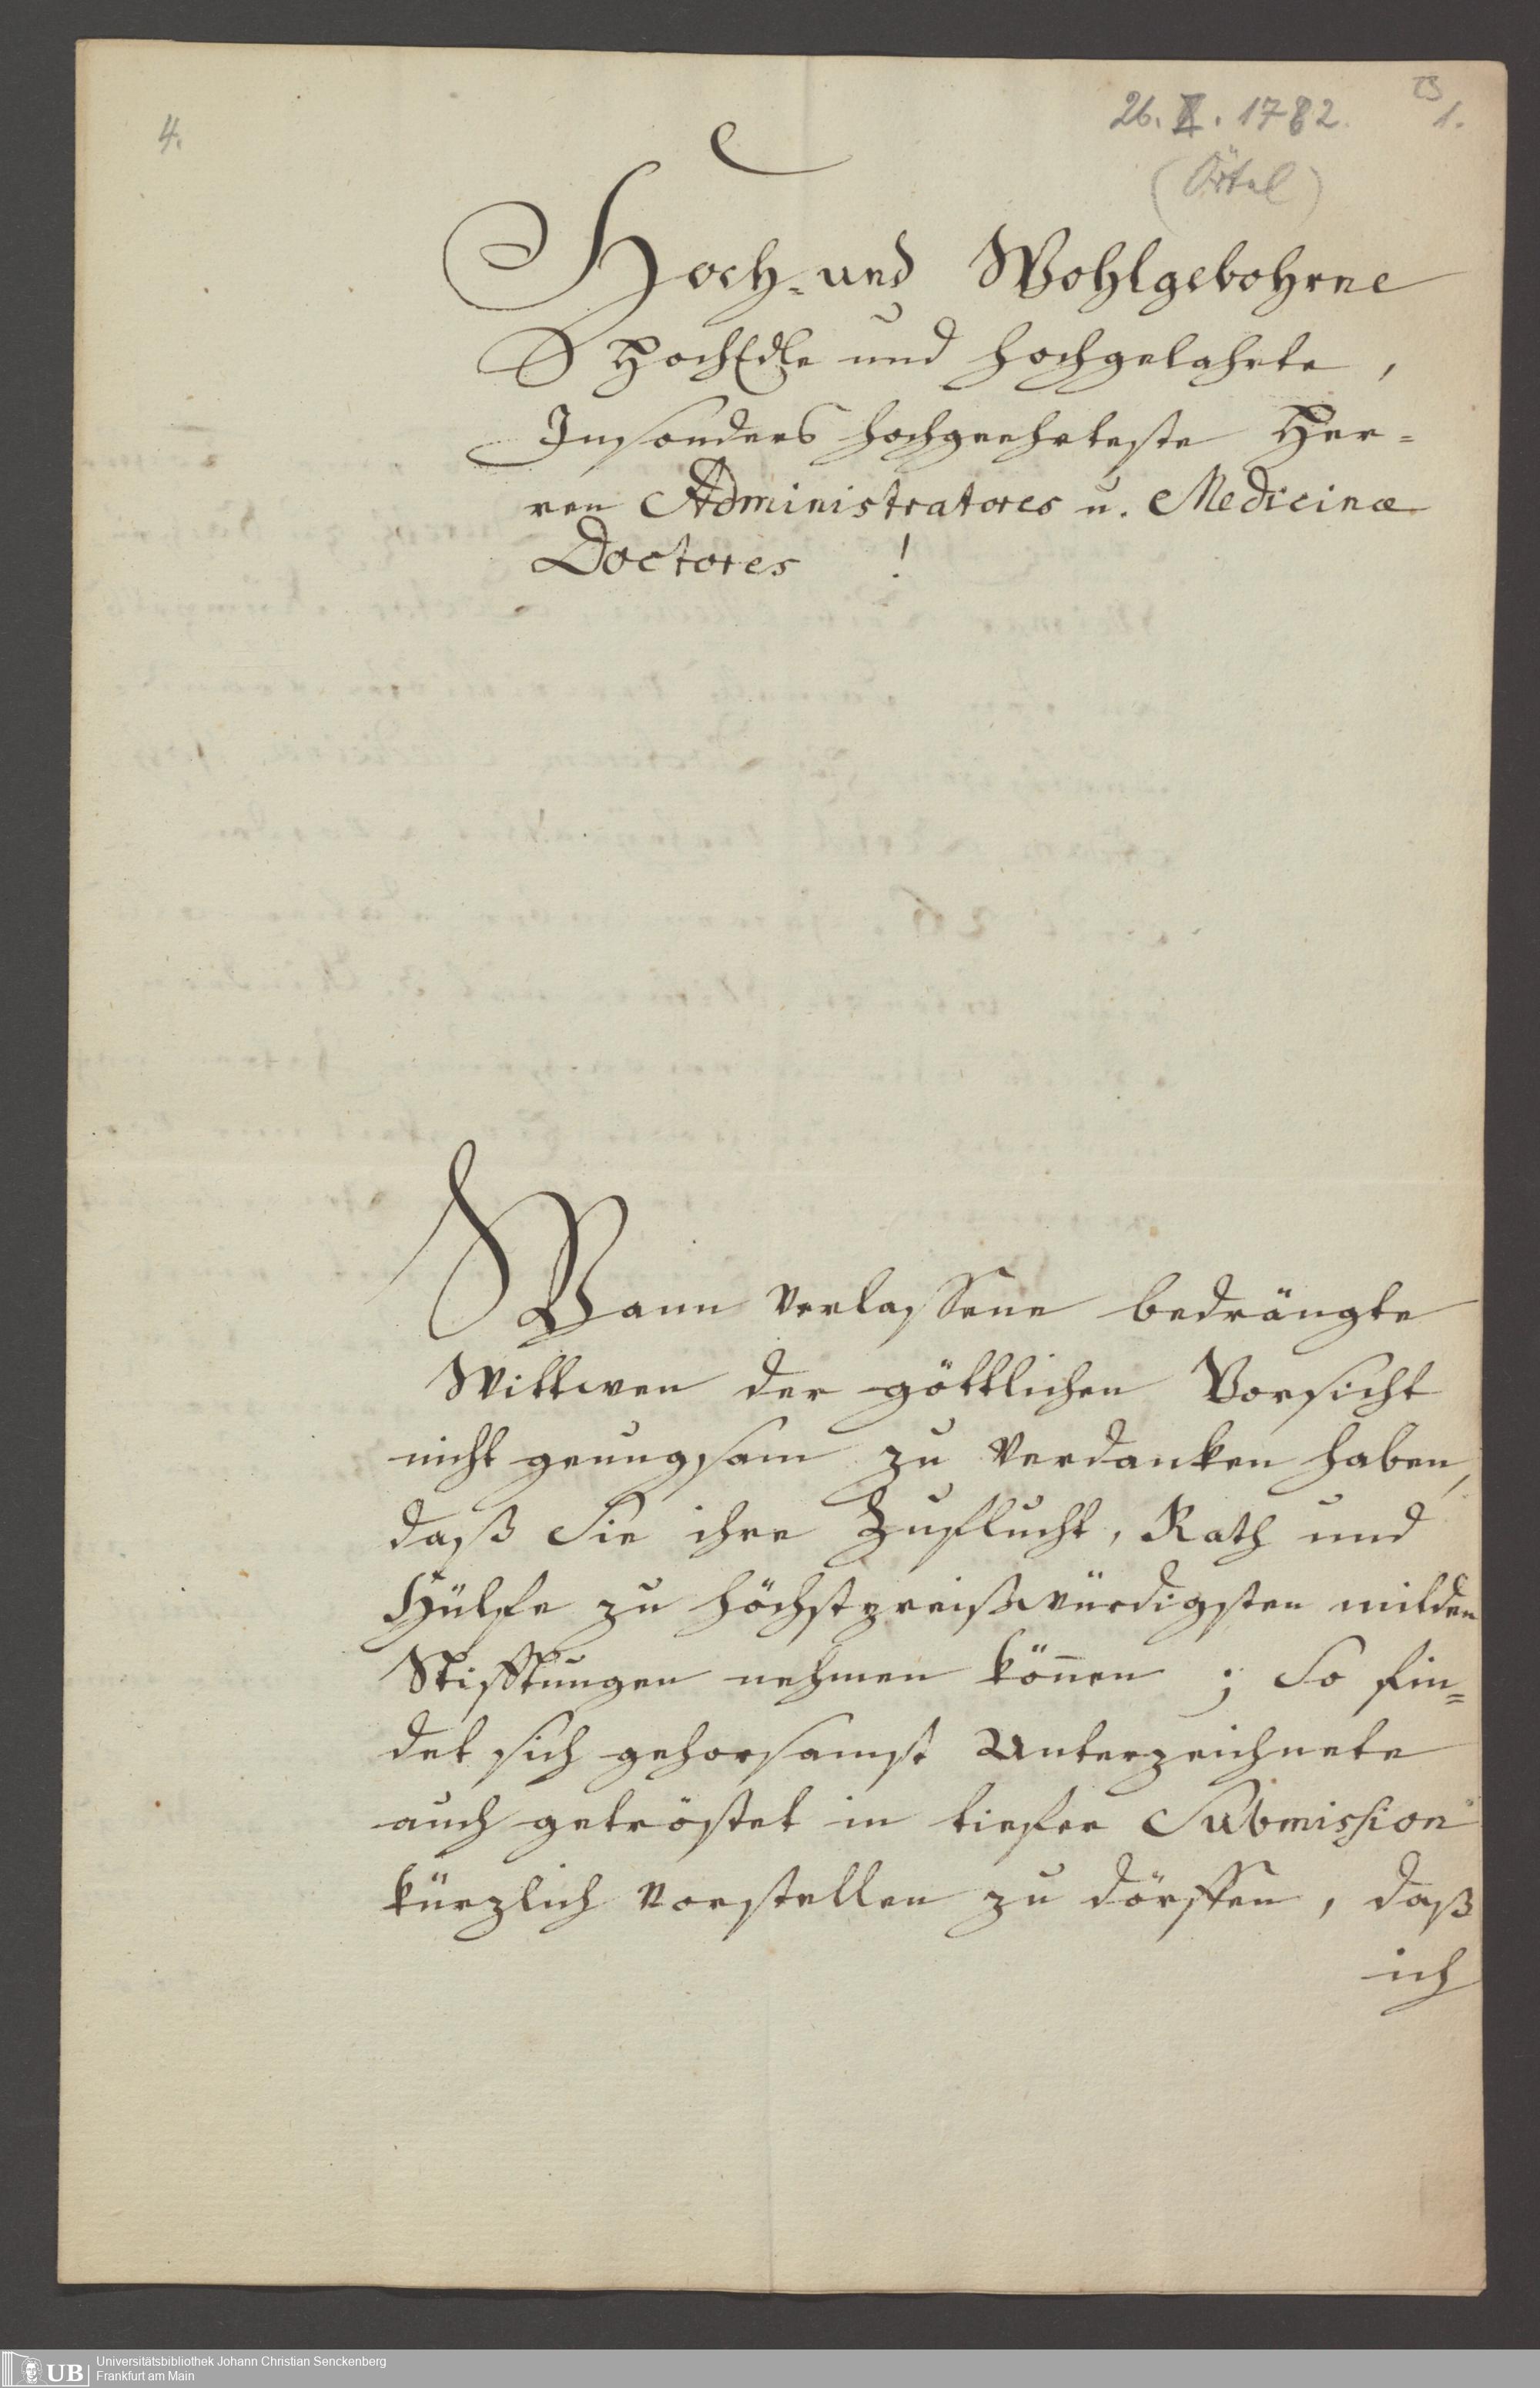 4.
26. II. 1782.
1.
(Örtel)
Hoch- und Wohlgebohrne
HochEdle und hochgelahrte,
Insonders hochgeehrteste Her=
ren Administratores u. Medicinæ
Doctores !
Wann verlassene bedrängte
Wittwen der göttlichen Vorsicht
nicht genugsam zu verdanken haben,
daß Sie ihre Zuflucht, Rath und
Hülfe zu höchstpreißwürdigsten milden
Stifftungen nehmen können ; So fin=
det sich gehorsamst Unterzeichnete
auch getröstet in tiefer Submission
kürzlich vorstellen zu dörffen, daß
ich
UB
Universitätsbibliothek Johann Christian Senckenberg
Frankfurt am Main